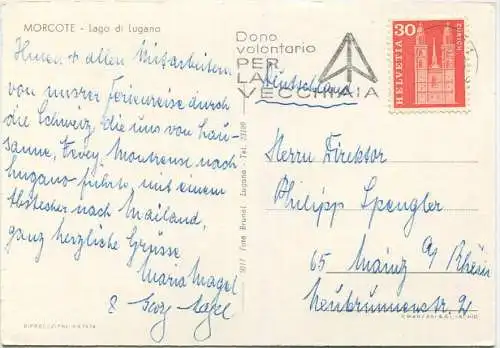 MORCOTE - Lago di Lugano
Ihnen + allen Mitarbeitern
von unserer Ferienreise durch
die Schweiz, die uns von Lau-
sanne, Vevey, Montreux nach
Lugano führte, mit einem
Abstecher nach Mailand,
ganz herzliche Grüsse
Maria Nagel
& Georg Nagel
5017 Foto Brunel - Lugano - Tel.
Dono
volontario
PER
LA
VECCHIAIA
Deutschland
30
HELVETIA
ZÜRICH
Herrn Direktor
Philipp Spengler
65 Mainz a/Rhein
Neubrunnenstr. 21